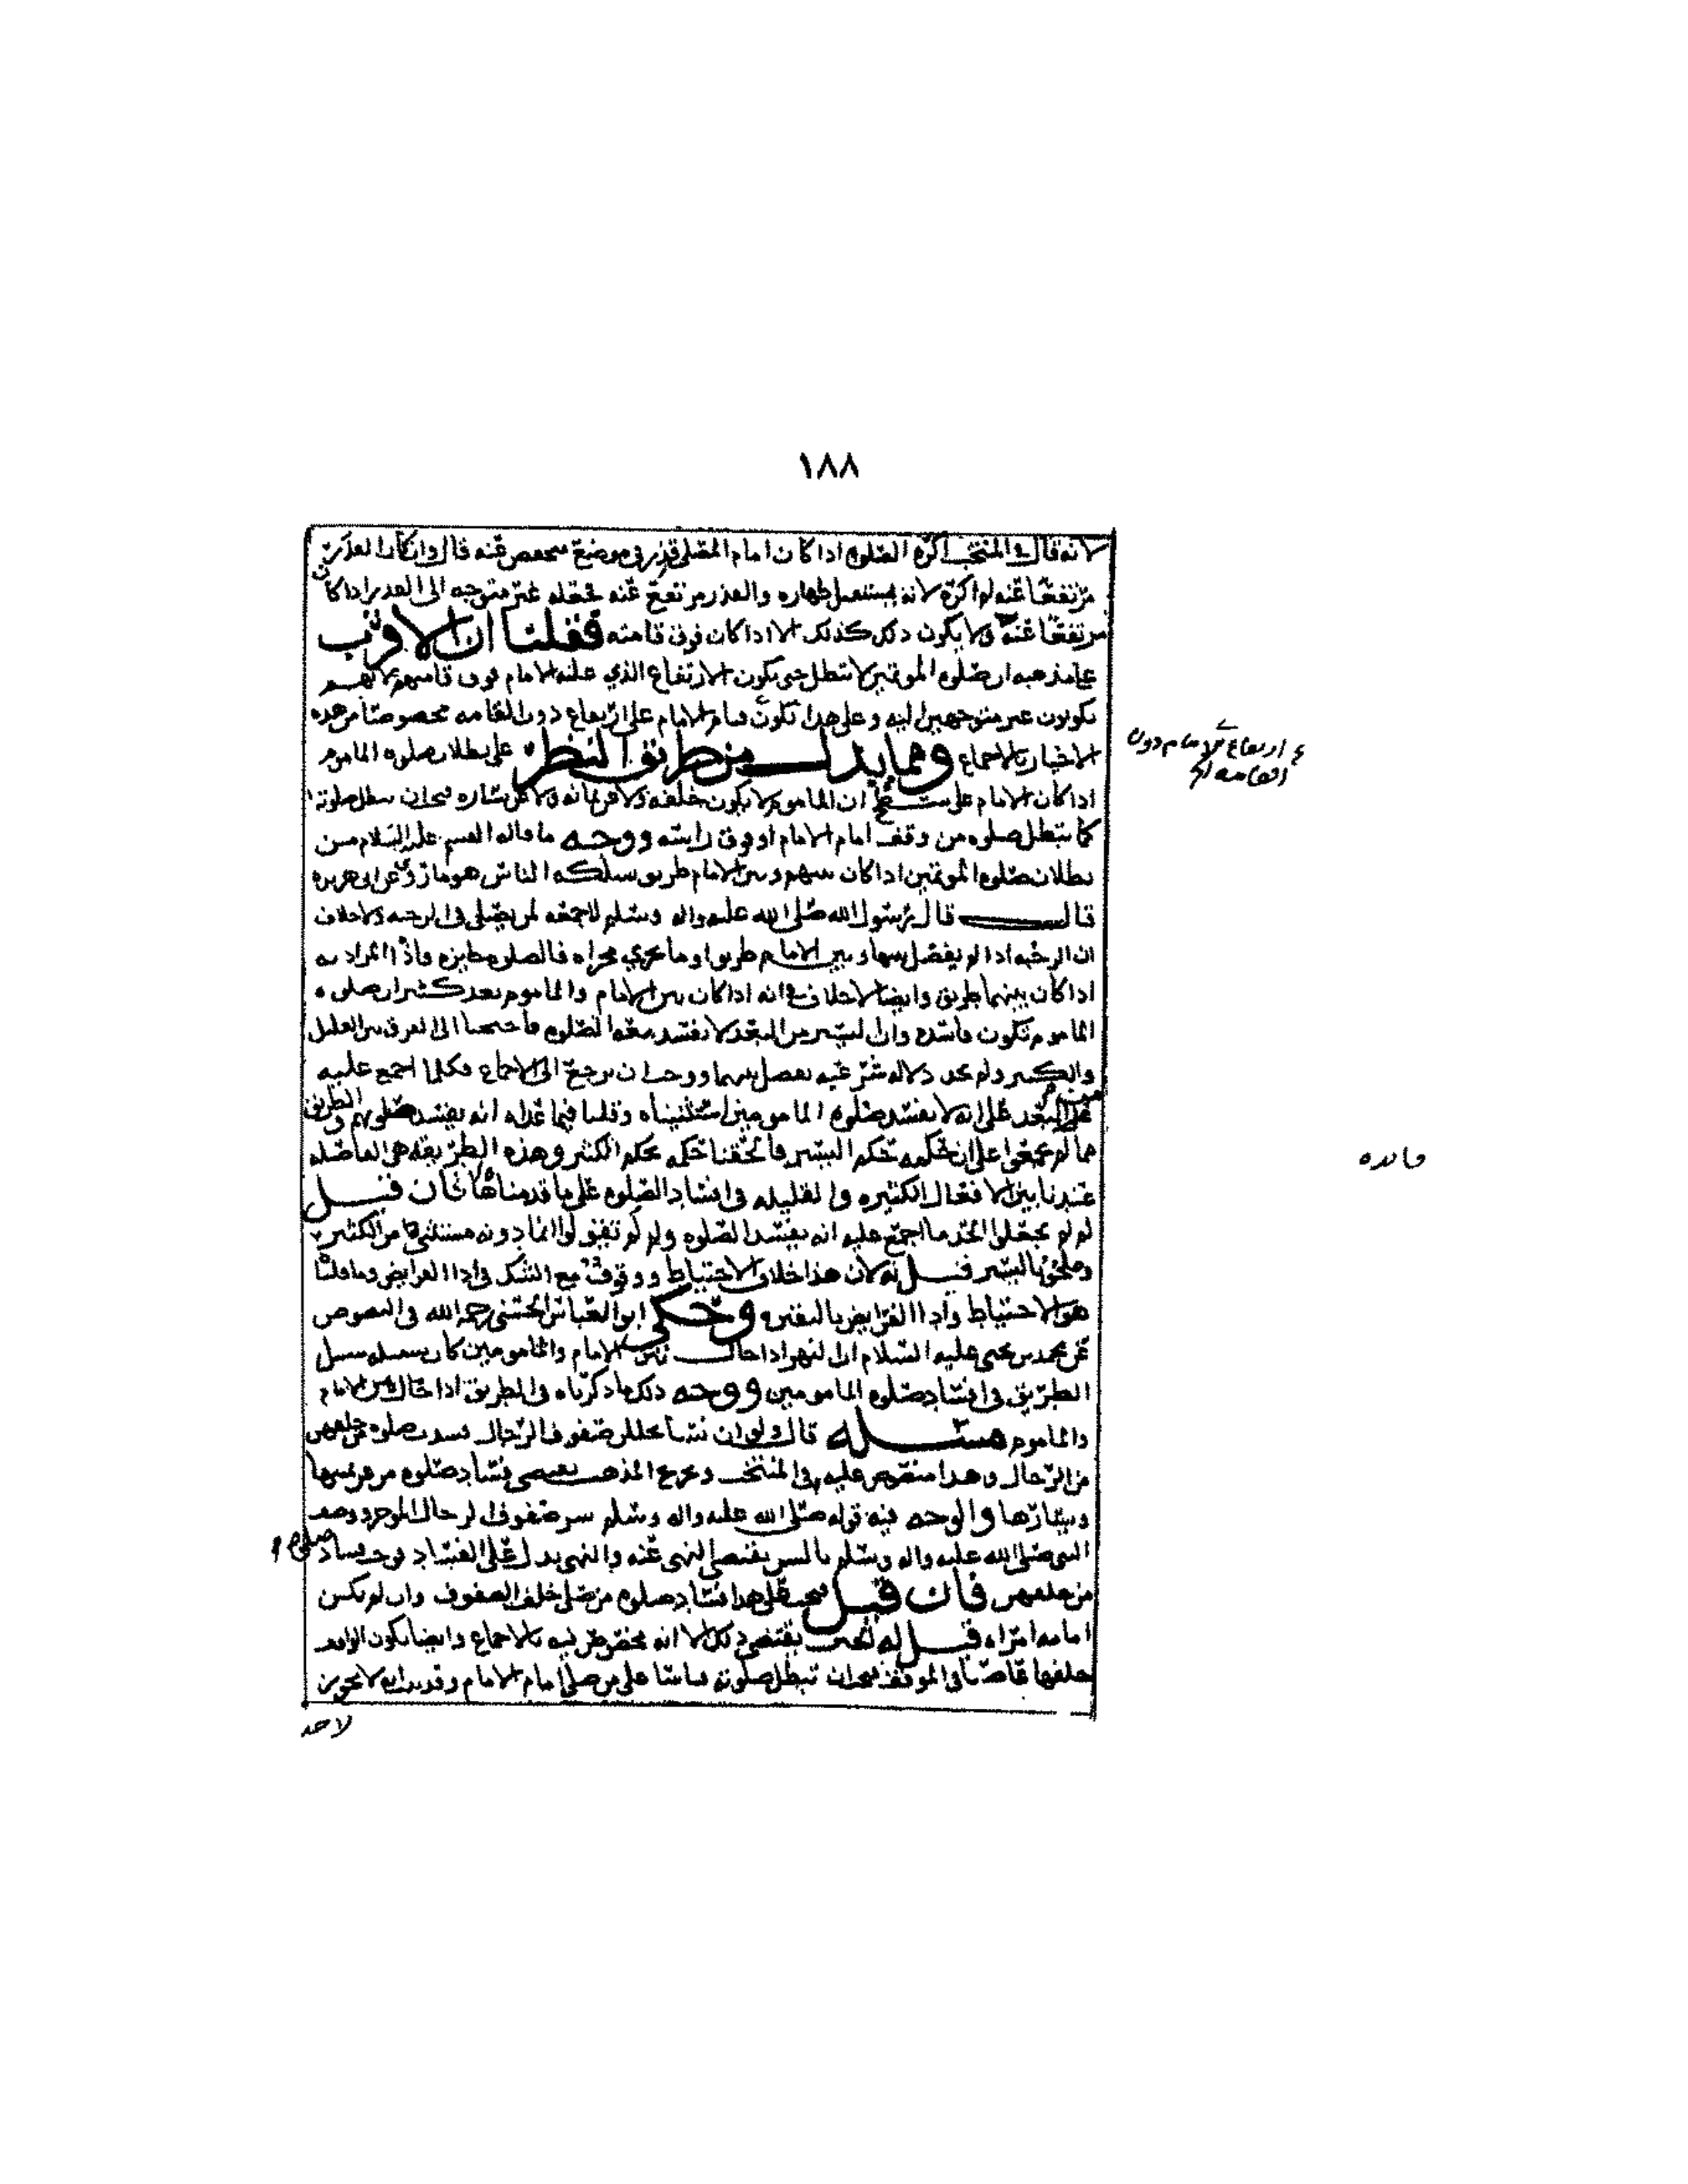 ١٨٨
لانه قال في المنتخب اكره الصلوه اذا كان امام المصلي قذر في موضع منخفض عنه قال وان كان القذر
مرتفعا عنه لم اكره لانه يستقبل طهاره والقذر مرتفع عنه فجعله غير متوجه الى القذر اذا كان
مرتفعا عنه ولا يكون ذلك كذلك الا اذا كان فوق قامته فقلنا ان الاقرب
على مذهبه ان صلوه المؤتمين لا تبطل حتى يكون الارتفاع الذي عليه الامام فوق قامتهم لانهم
يكونون غير متوجهين اليه وعلى هذا يكون قيام الامام على ارتفاع دون القامه مخصوصا من هذه
الاخبار بالاجماع ومما يدل من طريق النظر على بطلان صلوه الماموم
اذا كان الامام على سطح ان الماموم لا يكون خلفه ولا عن يمانه ولا عن يساره فيجب ان تبطل صلوته
كما تبطل صلوه من وقف امام الامام او فوق راسه ووجه ما قاله القسم عليه السلام من
بطلان صلوه المؤتمين اذا كان بينهم وبين الامام طريق سلكه الناس هو ما روي عن ابي هريره
قال قال رسول الله صلى الله عليه واله وسلم لا جمعه لمن يصلي في الرحبه ولا خلاف
ان الرحبه اذا لم يفصل بينها وبين الامام طريق او ما يجري مجراه فالصلوه جايزه واذا المراد به
اذا كان بينهما طريق وايضا لا خلاف في انه اذا كان بين الامام والماموم بعد كثير ان صلوه
الماموم تكون فاسده وان اليسير من البعد لا يفسد معه الصلوه فاحتجنا الى الفرق بين القليل
والكثير ولم نجد دلاله شرعيه تفصل بينهما ووجب ان نرجع الى الاجماع فكلما اجمع عليه
من البعد على انه لا يفسد صلوه المامومين استثنيناه وقلنا فيما عداه انه يفسد صلوتهم والطريق
مما لم يجمعوا على ان حكمه حكم اليسير فالحقنا حكمه بحكم الكثير وهذه الطريقه هي الفاصله
عندنا بين الافعال الكثيره والقليله في افساد الصلوه على ما قدمناه فان قيل
لم لم تجعلوا الحد ما اجمع عليه انه يفسد الصلوه ولم لم تقولوا انما دونه مستثنى من الكثير
وملحق باليسير قيل له لان هذا خلاف الاحتياط ووقوف مع الشك في اداء الفرايض وما قلنا
هو الاحتياط واداء الفرايض باليقين وحكى ابو العباس الحسني رحمه الله في النصوص
عن محمد بن يحيى عليه السلام ان النهر اذا حال بين الامام والمامومين كان سبيله سبيل
الطريق في افساد صلوه المامومين ووجه ذلك ما ذكرناه في الطريق اذا حال بين الامام
والماموم مسئله قال ولو ان نساء تخللن صفوف الرجال فسدت صلوه من خلفهن
من الرجال وهذا منصوص عليه في المنتخب وتخريج المذهب يقتضي فساد صلوه من عن يمينها
ويسارها والوجه فيه قوله صلى الله عليه واله وسلم شر صفوف الرجال المؤخر ووصف
النبي صلى الله عليه واله وسلم بالشر يقتضي النهي عنه والنهي يدل على الفساد فوجب فساد صلوه
من خلفهن فان قيل فيجب على هذا فساد صلوه من صلى خلف الصفوف وان لم تكن
امامه امراه قيل له الخبر يقتضي ذلك الا انه مخصوص فيه بالاجماع وايضا يكون الواقف
خلفها عاصيا في الموقف فيجب ان تبطل صلوته قياسا على من صلى امام الامام وقد ثبت انه لا يجوز
لاحد
ع ارتفاع الامام دون
القامه الخ
فايده